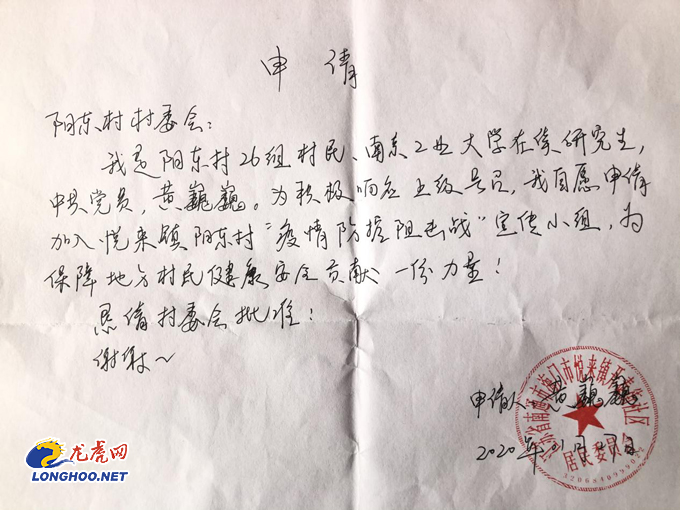 申 请
阳东村村委会：
我是阳东村26组村民、南京工业大学在读研究生，
中共党员，黄巍巍。为积极响应上级号召，我自愿申请
加入悦来镇阳东村“疫情防控阻击战”宣传小组，为
保障地方村民健康安全贡献一份力量！
恳请村委会批准！
谢谢~
申请人：黄巍巍
2020年01月27日
市海门市悦来镇阳东 社区
居民委员会
龙虎网
LONGHOO.NET